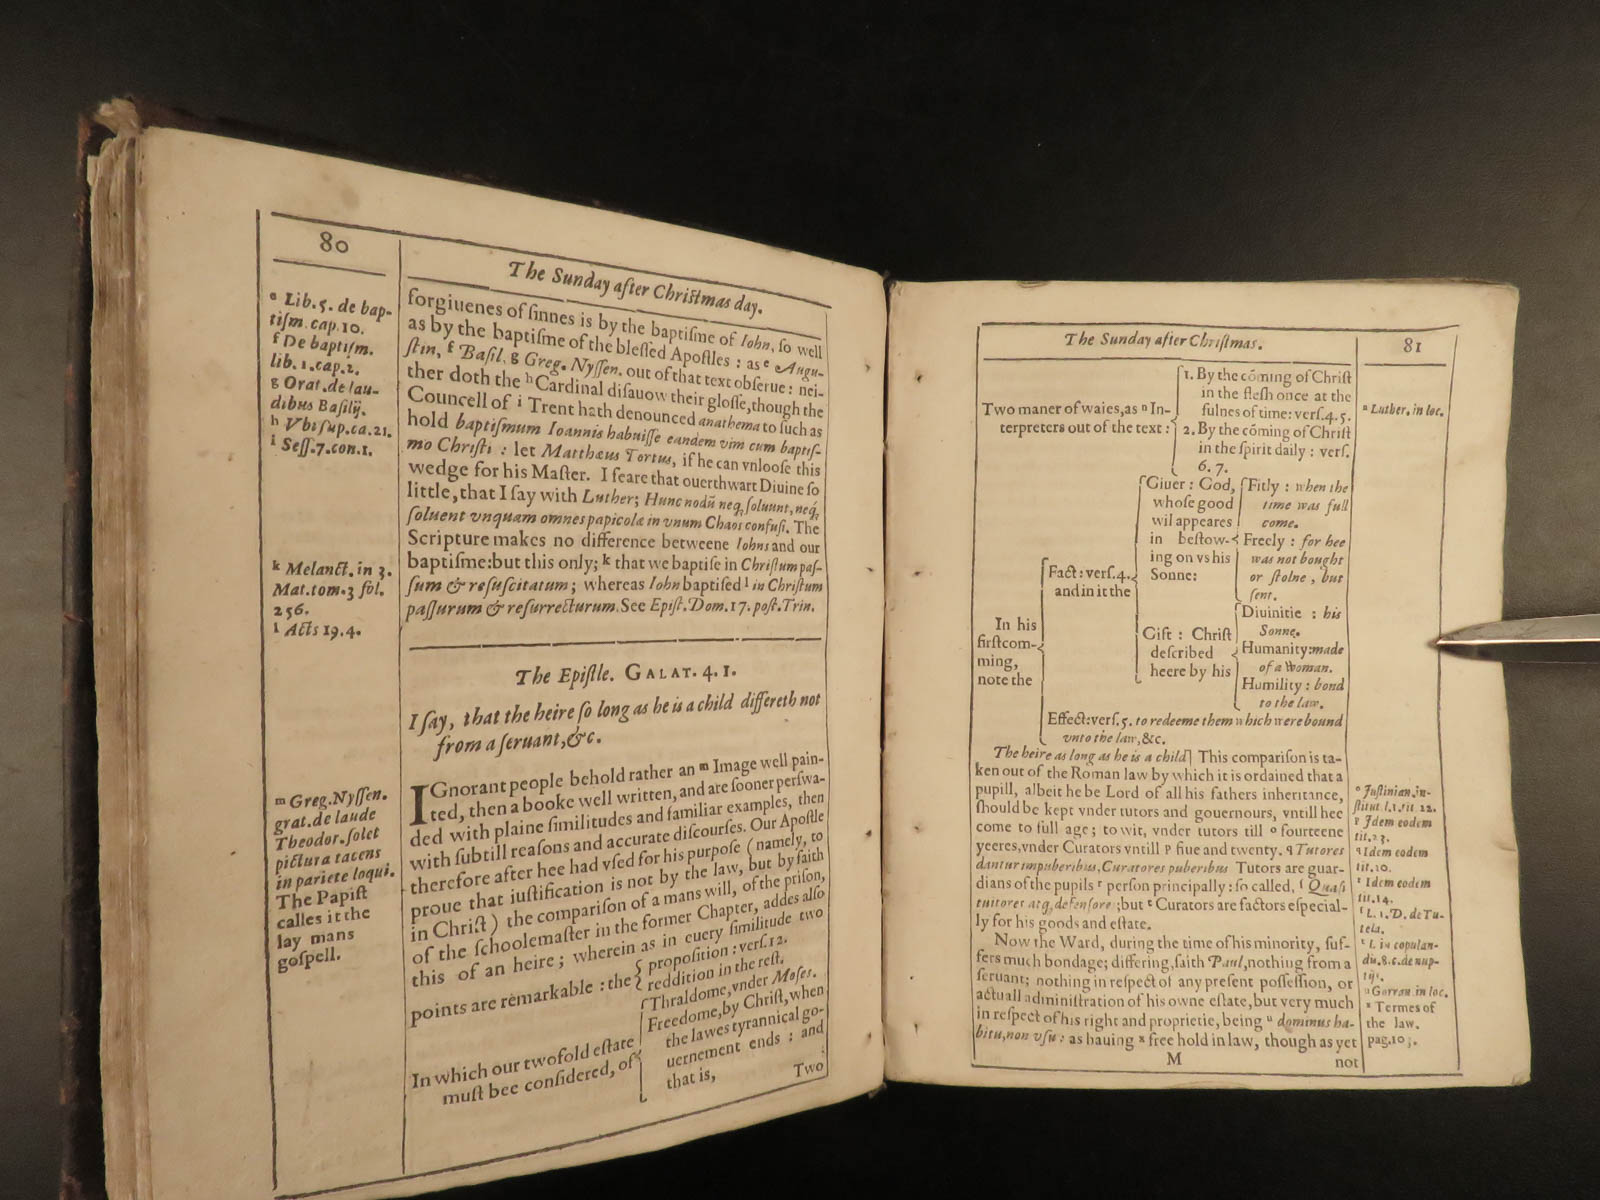 80
The Sunday after Christmas day.
e Lib.5. de bap-
tism. cap.10.
f De baptism.
lib. 1.cap.2.
g Orat.de lau-
dibus Basilij.
h Vbi sup.ca.21.
i Sess.7.con.1.
k Melanct. in 3.
Mat.tom.3 fol.
256.
l Acts 19.4.
m Greg.Nyssen.
grat.de laude
Theodor.solet
pictura tacens
in pariete loqui.
The Papist
calles it the
lay mans
gospell.
forgiuenes of sinnes is by the baptisme of Iohn, so well
as by the baptisme of the blessed Apostles : as e Augu-
stin, f Basil, g Greg. Nyssen. out of that text obserue : nei-
ther doth the h Cardinal disauow their glosse, though the
Councell of i Trent hath denounced anathema to such as
hold baptismum Ioannis habuisse eandem vim cum baptis-
mo Christi : let Matthæus Tortus, if he can vnloose this
wedge for his Master. I feare that ouerthwart Diuine so
little, that I say with Luther; Hunc nodū neq; soluunt, neq;
soluent vnquam omnes papicolæ in vnum Chaos confusi. The
Scripture makes no difference betweene Iohns and our
baptisme: but this only; k that we baptise in Christum pas-
sum & resuscitatum ; whereas Iohn baptised l in Christum
passurum & resurrecturum. See Epist. Dom. 17. post. Trin.
The Epistle. GALAT. 4. 1.
I say, that the heire so long as he is a child differeth not
from a seruant, &c.
IGnorant people behold rather an m Image well pain-
ted, then a booke well written, and are sooner perswa-
ded with plaine similitudes and familiar examples, then
with subtill reasons and accurate discourses. Our Apostle
therefore after hee had vsed for his purpose (namely, to
proue that iustification is not by the law, but by faith
in Christ) the comparison of a mans will, of the prison,
of the schoolemaster in the former Chapter, addes also
this of an heire ; wherein as in euery similitude two
points are remarkable : the { proposition : vers. 12.
reddition in the rest.
In which our twofold estate
must bee considered, of
Thraldome, vnder Moses.
Freedome, by Christ, when
the lawes tyrannical go-
uernement ends : and
that is,
Two
The Sunday after Christmas.
81
n Luther. in loc.
Two maner of waies, as n In-
terpreters out of the text :
1. By the cōming of Christ
in the flesh once at the
fulnes of time: vers. 4. 5.
2. By the cōming of Christ
in the spirit daily : vers.
6. 7.
In his
first com-
ming,
note the
Fact : vers. 4.
and in it the
Giuer : God,
whose good
wil appeares
in bestow-
ing on vs his
Sonne:
Fitly : when the
time was full
come.
Freely : for hee
was not bought
or stolne, but
sent.
Gift : Christ
described
heere by his
Diuinitie : his
Sonne.
Humanity: made
of a Woman.
Humility : bond
to the law.
Effect: vers. 5. to redeeme them which were bound
vnto the law, &c.
The heire as long as he is a child] This comparison is ta-
ken out of the Roman law by which it is ordained that a
pupill, albeit he be Lord of all his fathers inheritance,
should be kept vnder tutors and gouernours, vntill hee
come to full age; to wit, vnder tutors till o fourteene
yeeres, vnder Curators vntill p fiue and twenty. q Tutores
dantur impuberibus, Curatores puberibus Tutors are guar-
dians of the pupils r person principally : so called, s Quasi
tuitores atq; defensores; but t Curators are factors especial-
ly for his goods and estate.
Now the Ward, during the time of his minority, suf-
fers much bondage; differing, saith Paul, nothing from a
seruant; nothing in respect of any present possession, or
actuall administration of his owne estate, but very much
in respect of his right and proprietie, being u dominus ha-
bitu, non vsu : as hauing x free hold in law, though as yet
M
not
o Justinian. in-
stitut. l.1. tit. 22.
p Idem eodem
tit. 23.
q Idem eodem
tit. 10.
r Idem eodem
tit. 14.
s L. 1. D. de Tu-
tela.
t l. in copulan-
dis. 8. c. de nup-
tijs.
u Gorran. in loc.
x Termes of
the law.
pag. 10